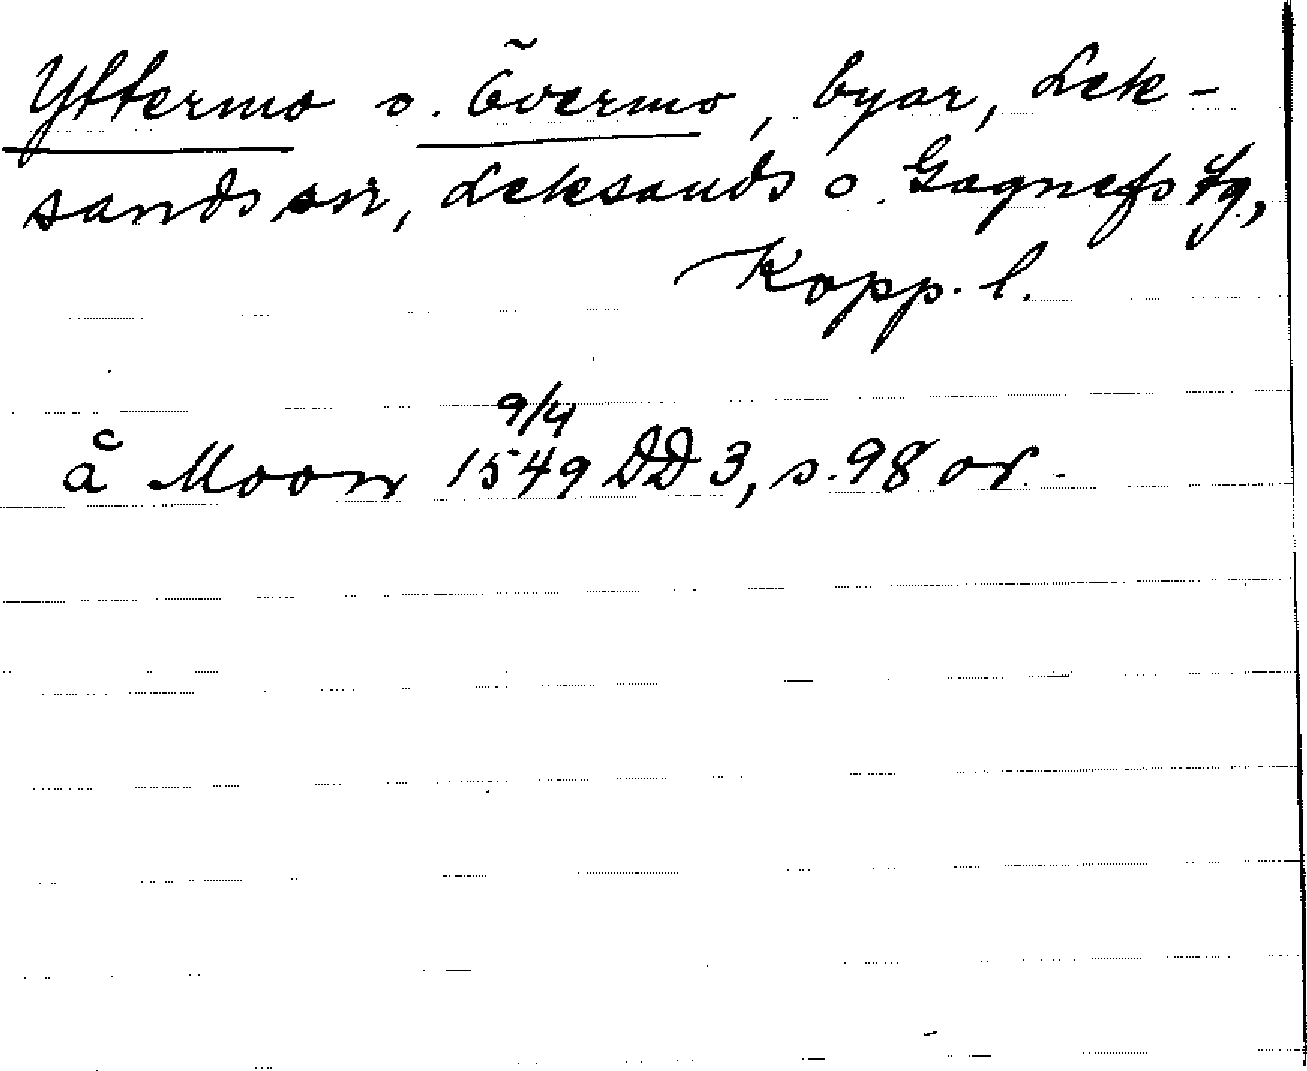 Yttermo o. Övermo, byar, Lek-
sands sn, Leksands o. Gagnefs tg.,
Kopp. l.
9/4
å Moon 1549 DD 3, s. 98 or.